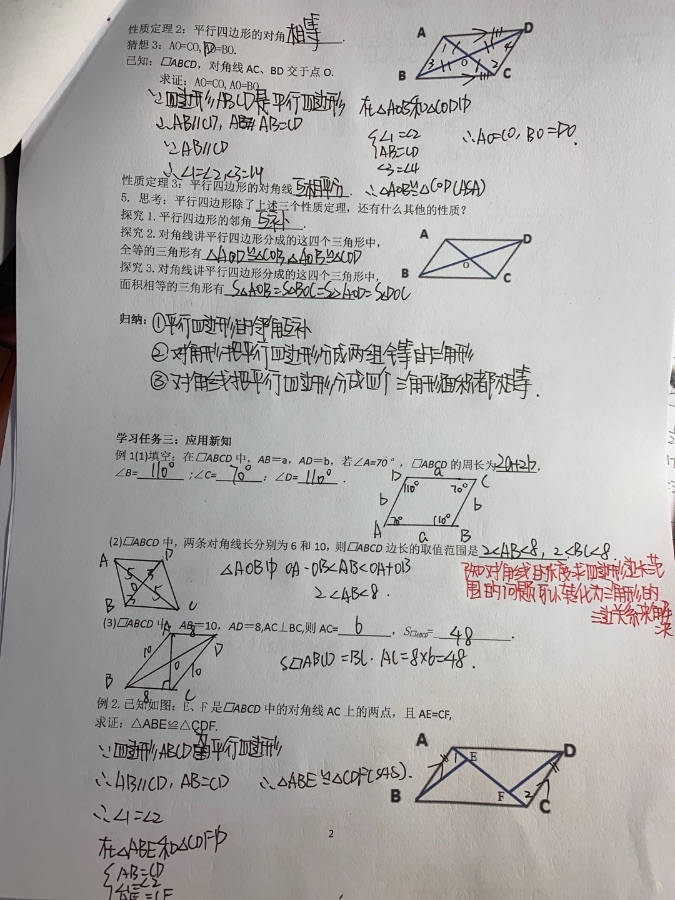 性质定理2：平行四边形的对角相等.
猜想3：AO=CO, BO=BO.
已知：□ABCD，对角线AC、BD交于点O.
求证：AO=CO, AO=BO
∵四边形ABCD是平行四边形 在△AOB和△COD中
∴AB//CD, AB=CD
{∠1=∠2
AB=CD
∠3=∠4
∴AO=CO, BO=DO.
∵AB//CD
∴∠1=∠2,∠3=∠4
∴△AOB≌△COD(ASA)
性质定理3：平行四边形的对角线互相平分.
5. 思考：平行四边形除了上述三个性质定理，还有什么其他的性质？
探究1.平行四边形的邻角互补.
探究2.对角线讲平行四边形分成的这四个三角形中，
全等的三角形有△AOD≌△COB,△AOB≌△COD
探究3.对角线讲平行四边形分成的这四个三角形中，
面积相等的三角形有S△AOB=S△BOC=S△AOD=S△DOC
归纳：①平行四边形的邻角互补
②对角形把平行四边形分成两组全等的三角形
③对角线把平行四边形分成四个三角形面积都相等.
学习任务三：应用新知
例1(1)填空：在□ABCD中，AB=a，AD=b，若∠A=70°，□ABCD的周长为2a+2b.
∠B=110°；∠C=70°；∠D=110°.
(2)□ABCD中，两条对角线长分别为6和10，则□ABCD边长的取值范围是2<AB<8, 2<BC<8.
△AOB中 OA-OB<AB<OA+OB
2<AB<8.
已知对角线的长度求四边形边长范
围的问题可以转化为三角形的
三边关系来解
决
(3)□ABCD中，AB=10，AD=8,AC⊥BC,则AC=6，S□ABCD=48.
S□ABCD=BC·AC=8×6=48.
例2.已知如图：E、F是□ABCD中的对角线AC上的两点，且AE=CF,
求证：△ABE≌△CDF.
∵四边形ABCD为平行四边形
∴AB//CD, AB=CD ∴△ABE≌△CDF(SAS).
∴∠1=∠2
在△ABE和△CDF中
{AB=CD
∠1=∠2
AE=CF
2